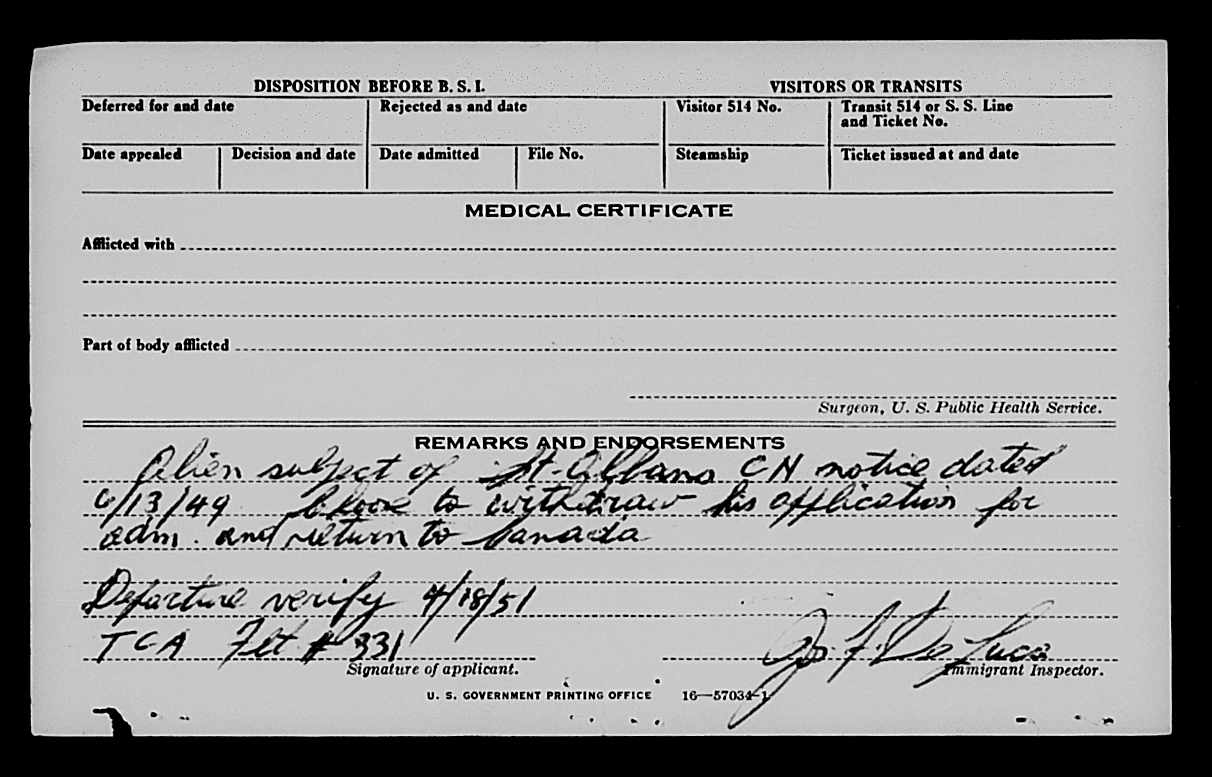 DISPOSITION BEFORE B. S. I. VISITORS OR TRANSITS
Deferred for and date Rejected as and date Visitor 514 No. Transit 514 or S. S. Line and Ticket No.
Date appealed Decision and date Date admitted File No. Steamship Ticket issued at and date
MEDICAL CERTIFICATE
Afflicted with
Part of body afflicted
Surgeon, U. S. Public Health Service.
REMARKS AND ENDORSEMENTS
Alien subject of St. Albans CN notice dated
6/13/49 Chose to withdraw his application for
adm. and return to Canada
Departure verify 4/18/51
TCA Flt # 331
Signature of applicant.
Jos. F. De Luca
Immigrant Inspector.
U. S. GOVERNMENT PRINTING OFFICE 16—57034-1